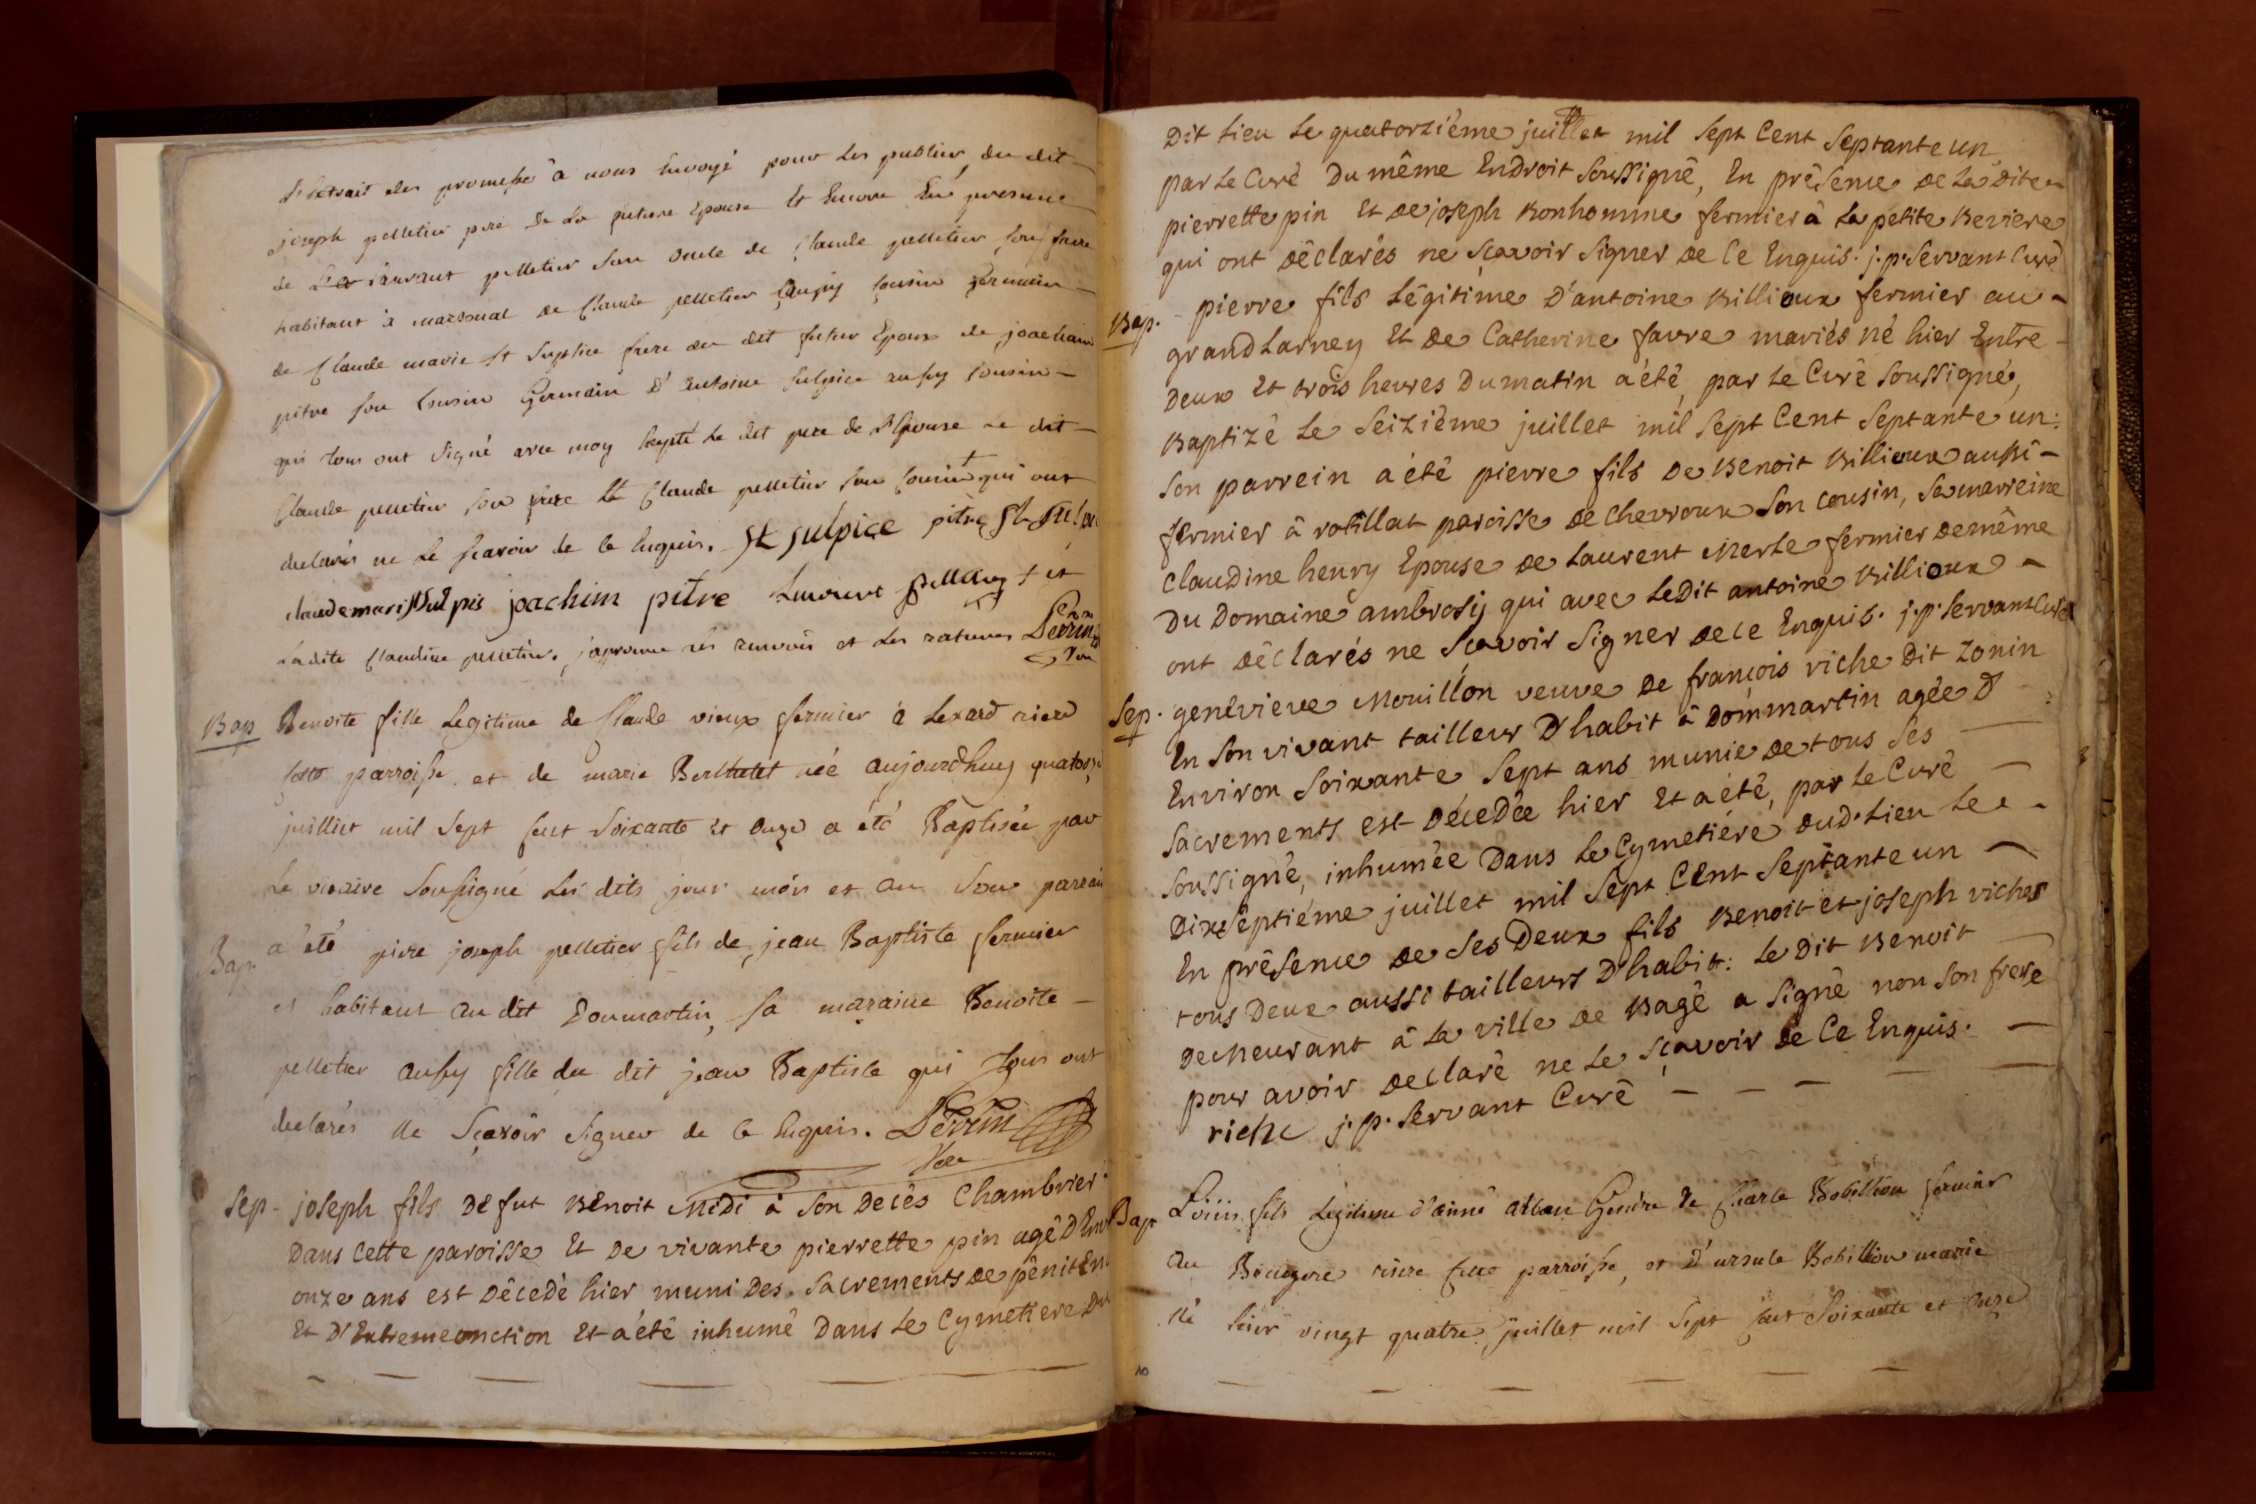 L'extrait des promesse à nous Envoyé pour les publier, du dit
joseph pelletier pere de la future Epouse Et Encore En presence
de Laurant pelletier son oncle de Claude pelletier son frere
habitant à marsonat de Claude pelletier aussy cousin Germain
de Claude marie St Suplice frere du dit futur Epoux de joachim
pitre son Cousin Germain D'antoine sulpice aussy cousin
qui tous ont signé avec moy Excepté le dit pere de l'Epouse le dit
Claude pelletier son frere Et Claude pelletier son cousin + qui ont
declarés ne le scavoir de ce Enquis. St sulpice pitre St Sulpice
claudemarist sulpis joachim pitre Laurent pelletier + et
Ladite Claudine pelletier. japrouve les renvois et les ratures Perrin
Vic
Bap Benoite fille Legitime de Claude vieux fermier à Lexard riere
cette parroisse et de marie Berthelet née aujourdhuy quatorze
juillet mil sept cent soixante Et onze a été Baptisée par
Le vicaire soussigné les dits jour mois et an son parrain
Bap. a été pierre joseph pelletier fils de jean Baptiste fermier
et habitant au dit Donmartin, sa maraine Benoite
pelletier aussy fille du dit jean Baptiste qui tous ont
declarés ne Sçavoir signer de ce Enquis. Perrin
Vic
Sep - joseph fils De fut Benoit Midi à son Decès Chambrier
Dans cette paroisse Et De vivante pierrette pin agé D'Env
onze ans est Décedé hier muni Des Sacrements de péniten
Et D'Extremeonction Et a été inhumé Dans Le Cymetiere Du
Dit Lieu Le quatorziéme juillet mil sept Cent Septante un
par Le Curé Du même Endroit Soussigné, En présence De La Dite
pierrette pin Et De joseph Bonhomme fermier à La petite Beviere
qui ont Déclarés ne Sçavoir signer De Ce Enquis. j.p. Servant Curé
Bap. - pierre fils Légitime D'antoine Billioux fermier au
grand Larney Et De Catherine favre mariés né hier Entre
Deux Et trois heures Du matin a été, par Le Curé Soussigné,
Baptizé Le Seiziéme juillet mil Sept Cent Septante un:
Son parrein a été pierre fils De Benoit Billioux aussi
fermier à rotillat paroisse De chevroux Son cousin, Sa marreine
Claudine henry Epouse De Laurent Merle fermier De même
Du Domaine ambrosij qui avec Le Dit antoine Billioux
ont Déclarés ne Scavoir Signer De Ce Enquis. j.p. Servant Curé
Sep. genévieve Mouillon veuve De françois riche Dit Zonin
En Son vivant tailleur D'habit à Dommartin agée D'
Environ Soixante Sept ans munie De tous Ses
Sacrements est Décedée hier Et a été, par Le Curé
Soussigné, inhumée Dans Le Cymetiére Dud. Lieu Le
Dixseptiéme juillet mil Sept Cent Septante un
En présence De Ses Deux fils Benoit et joseph riches
tous Deux aussi tailleurs D'habit: Le Dit Benoit
Demeurant à La ville De Bagé a Signé non Son frere
pour avoir Declaré ne Le Sçavoir De Ce Enquis.
riche j.p. Servant Curé
Bap Loüis fils Legitime d'aimé Gendre de Charle Bobillion fermier
au riere cette parroisse, et d'ursule Bobillion mariés
Né hier vingt quatre juillet mil sept cent soixante et onze
10